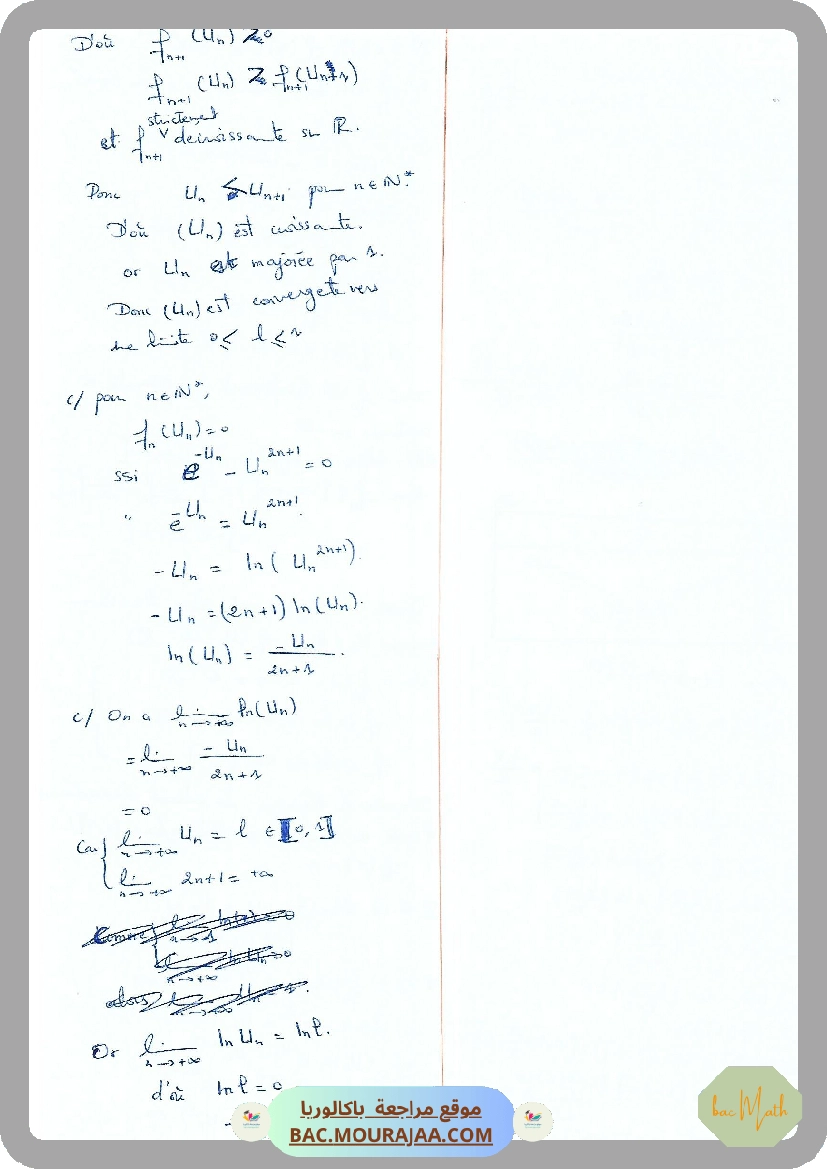 D'où f_{n+1} (U_n) ≥ 0
f_{n+1} (U_n) ≥ f_{n+1} (U_{n+1})
strictement
et f_{n+1} décroissante sur ℝ.
Donc U_n ≤ U_{n+1} pour n ∈ ℕ*.
D'où (U_n) est croissante.
or U_n est majorée par 1.
Donc (U_n) est convergete vers
une limite 0 ≤ l ≤ 1
c/ pour n ∈ ℕ*,
f_n (U_n) = 0
ssi e^{-U_n} - U_n^{2n+1} = 0
" e^{-U_n} = U_n^{2n+1}.
-U_n = ln( U_n^{2n+1}).
-U_n = (2n+1) ln(U_n).
ln(U_n) = -U_n / 2n+1 .
c/ On a lim_{n→+∞} ln(U_n)
= lim_{n→+∞} -U_n / 2n+1
= 0
Car { lim_{n→+∞} U_n = l ∈ [0,1]
lim_{n→+∞} 2n+1 = +∞
Or lim_{n→+∞} ln U_n = ln l.
d'où ln l = 0
موقع مراجعة باكالوريا
BAC.MOURAJAA.COM
bac Math